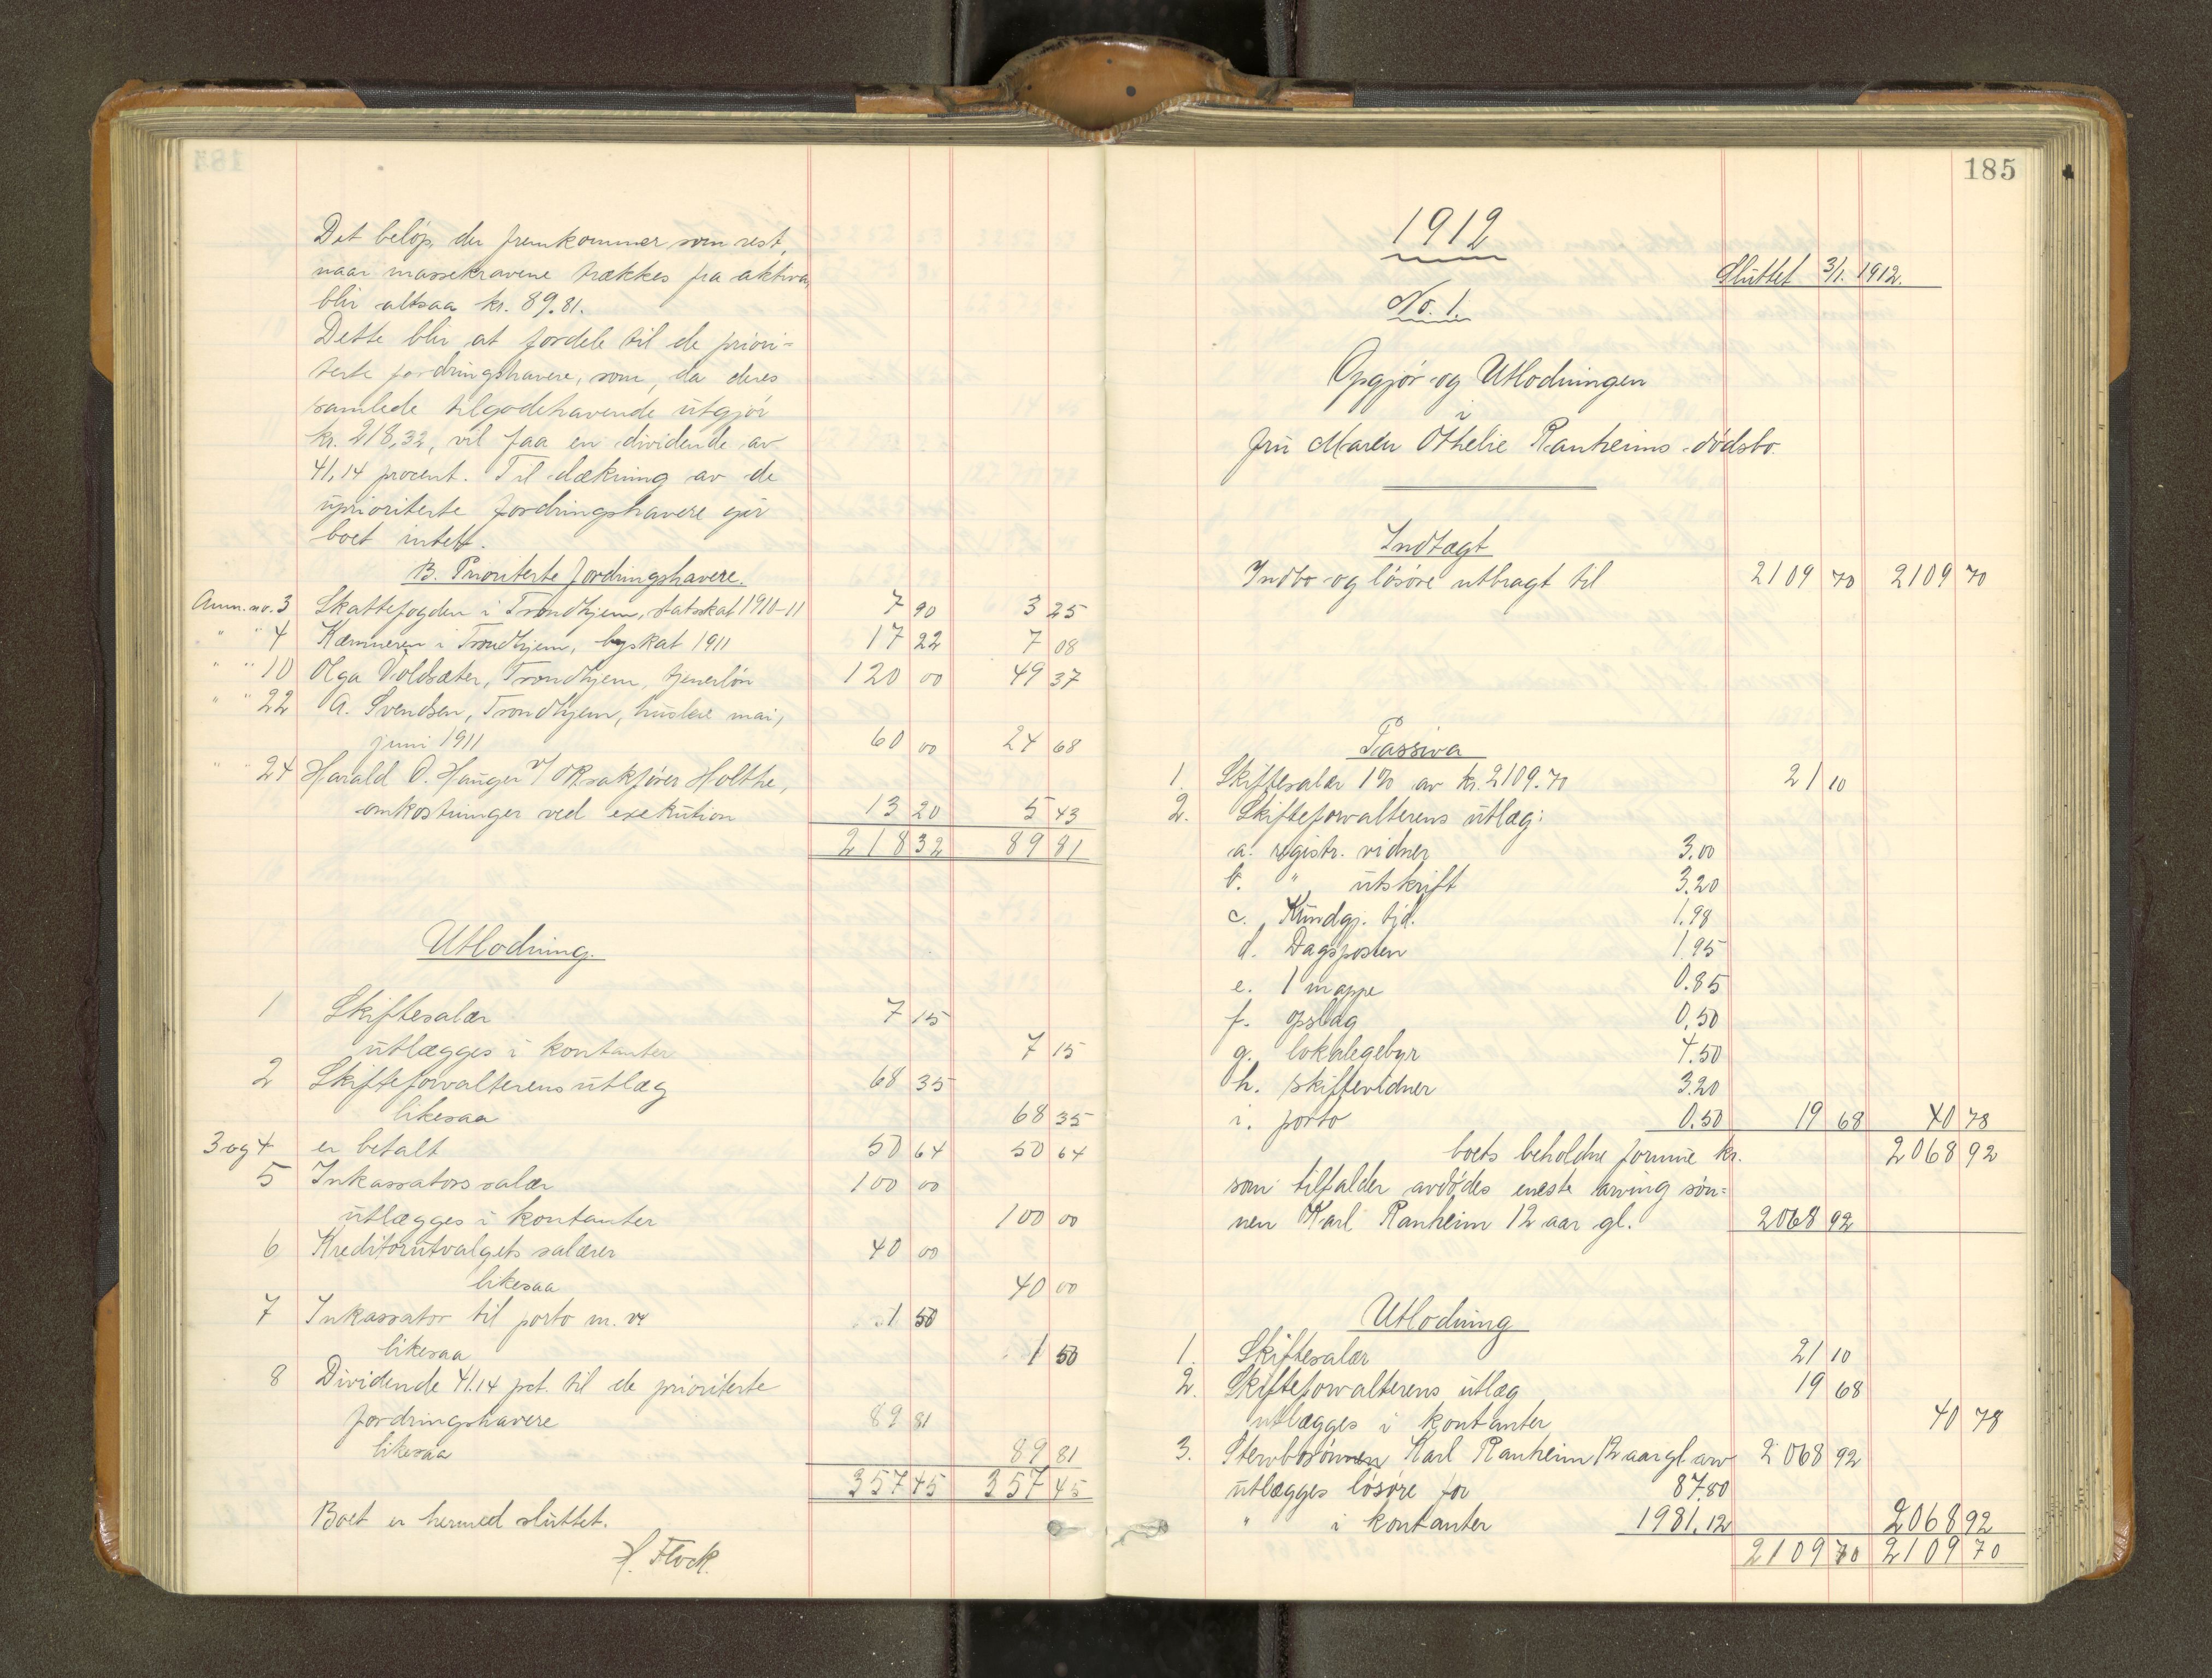 Det beløp, der fremkommer som rest,
naar massekravene trækkes fra aktiva,
blir altsaa kr. 89.81.
Dette blir at fordele til de priori-
terte fordringshavere, som, da deres
samlede tilgodehavende utgjør
kr. 218,32, vil faa en dividende av
41,14 procent. Til dækning av de
uprioriterte fordringshavere gir
boet intet.
B. Prioriterte fordringshavere.
Anm. no. 3 Skattefogden i Trondhjem, statsskat 1910-11 7 90 3 25
" " 4 Kæmneren i Trondhjem, byskat 1911 17 22 7 08
" " 10 Olga Voldsæter, Trondhjem, tjenerløn 120 00 49 37
" " 22 A. Svendsen, Trondhjem, husleie mai,
juni 1911 60 00 24 68
" " 24 Harald O. Hauger v/ Orsakfører Holthe,
omkostninger ved exekution 13 20 5 43
218 32 89 81
Utlodning.
1 Skiftesalær 7 15
utlægges i kontanter 7 15
2 Skifteforvalterens utlæg 68 35
likesaa 68 35
3 og 4 er betalt 50 64 50 64
5 Inkassators salær 100 00
utlægges i kontanter 100 00
6 Kreditorutvalgets salærer 40 00
likesaa 40 00
7 Inkassator til porto m. v. 1 50
likesaa 1 50
8 Dividende 41.14 pct. til de prioriterte
fordringshavere 89 81
likesaa 89 81
357 45 357 45
Boet er hermed sluttet.
H. Flock.
185
1912
Sluttet 3/1. 1912.
No. 1.
Opgjør og Utlodningen
i
fru Maren Othelie Ranheims dødsbo.
Indtægt
Indbo og løsøre utbragt til 2109 70 2109 70
Passiva
1. Skiftesalær 1% av kr. 2109.70 21 10
2. Skifteforvalterens utlæg:
a. registr. vidner 3.00
b. " utskrift 3.20
c. Kundgj. tid. 1.98
d. Dagsposten 1.95
e. 1 mappe 0.85
f. opslag 0.50
g. lokalegebyr 4.50
h. skiftevidner 3.20
i. porto 0.50 19 68 40 78
boets beholdne formue kr. 2068 92
som tilfalder avdødes eneste arving søn=
nen Karl Ranheim 12 aar gl. 2068 92
Utlodning
1. Skiftesalær 21 10
2. Skifteforvalterens utlæg 19 68
utlægges i kontanter 40 78
3. Stervbosønnen Karl Ranheim 12 aar gl arv 2068 92
utlægges løsøre for 87.80
" i kontanter 1981.12 2068 92
2109 70 2109 70